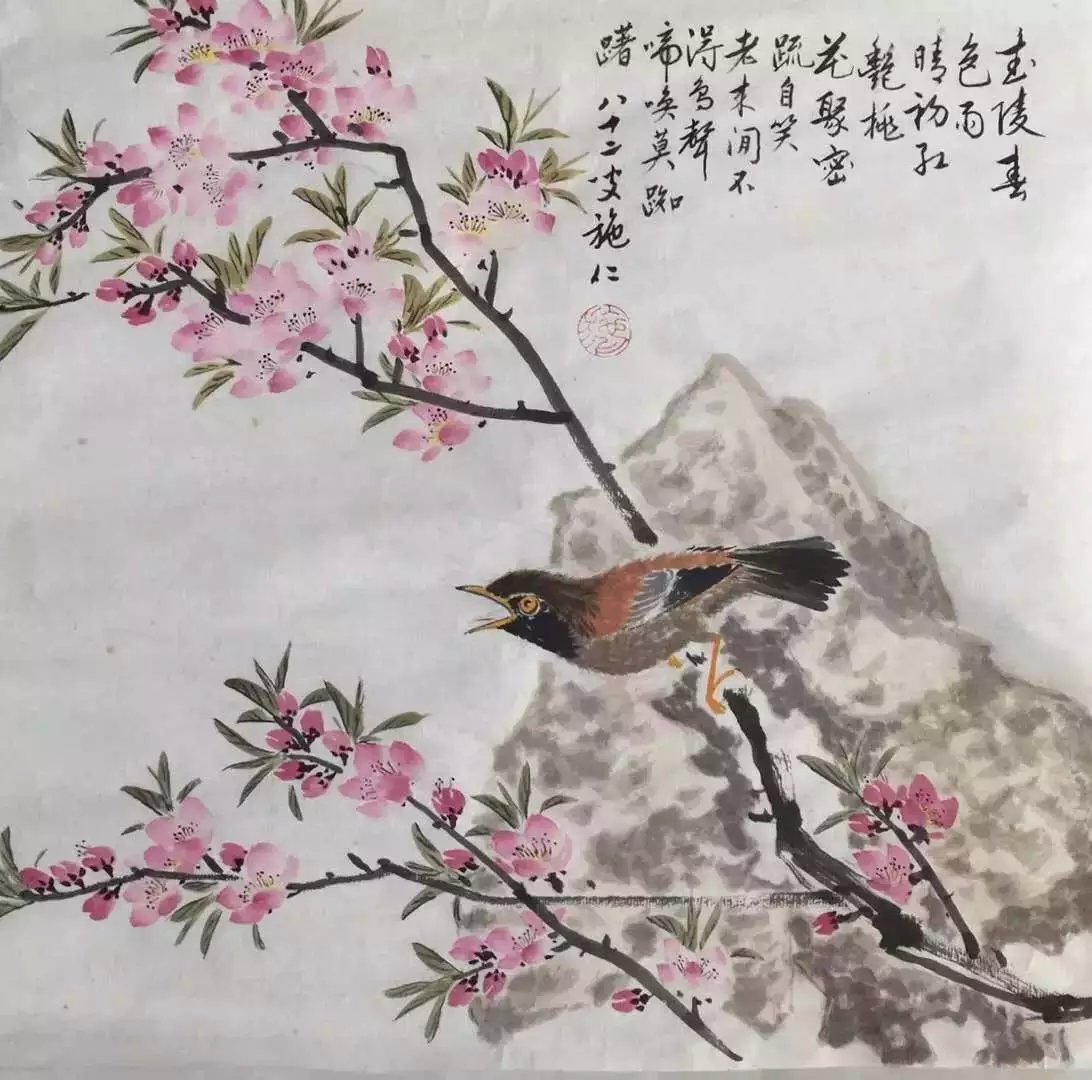 武陵春
色雨
晴初红
艷桃
花聚密
疏自笑
老来闲不
得鸟聲
啼唤莫踟
躇 八十二叟施仁